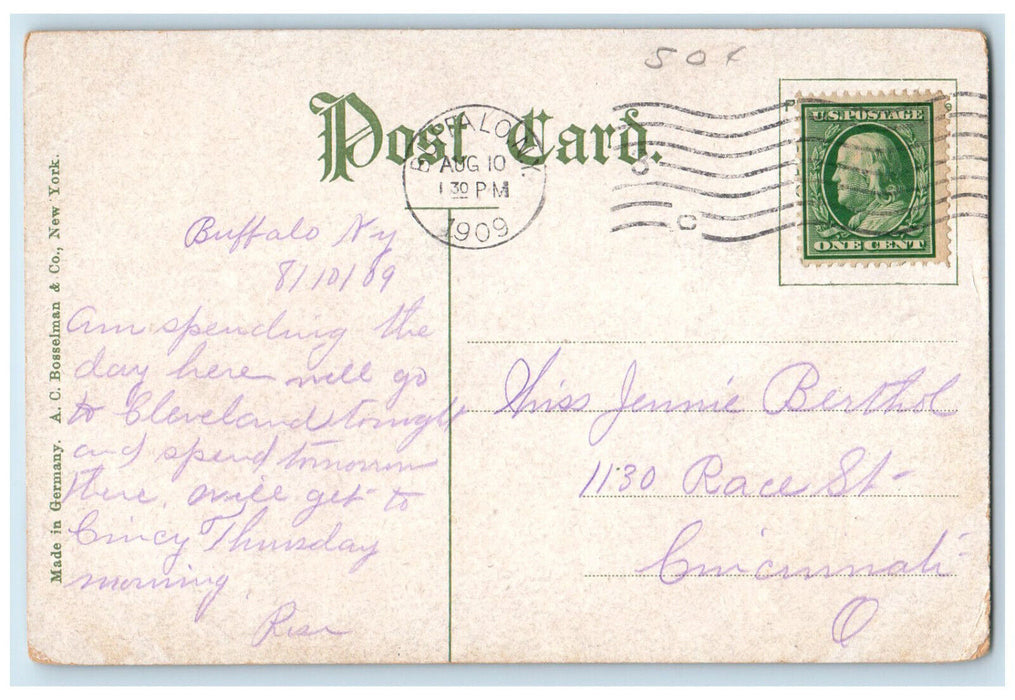 50¢
Post Card.
BUFFALO, N.Y.
AUG 10
1 30 P M
1909
U.S. POSTAGE
ONE CENT
Made in Germany. A. C. Bosselman & Co., New York.
Buffalo Ny
8/10/09
Am spending the
day here will go
to Cleveland tonight
and spend tomorrow
there. will get to
Cincy Thursday
morning.
Miss Jennie Berthol
1130 Race St-
Cincinnati
O